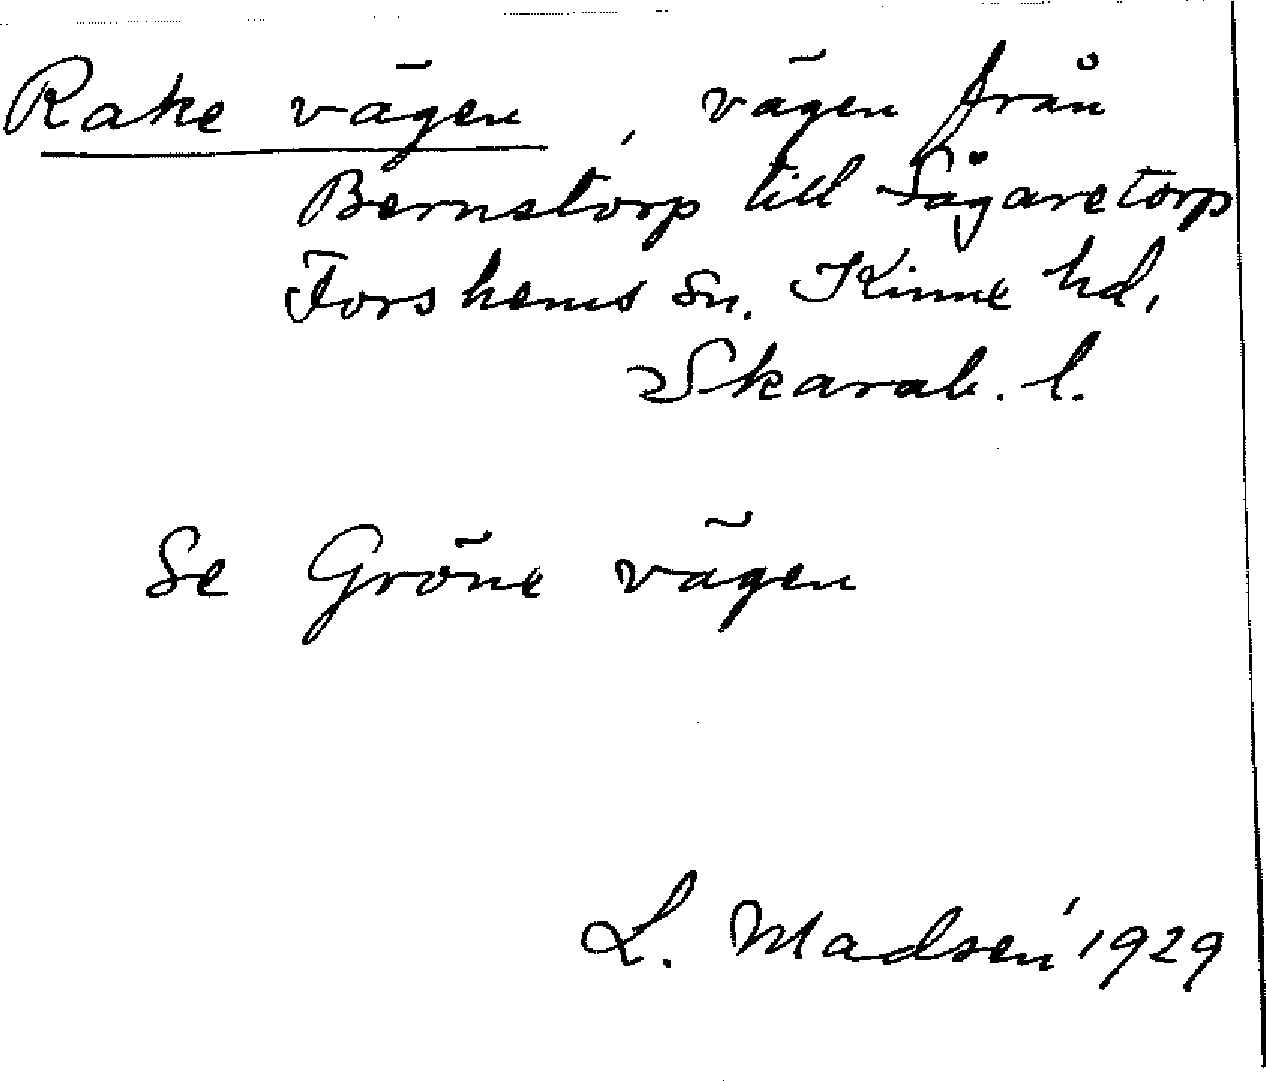 Rake vägen, vägen från
Bernstorp till Sågaretorp
Forshems sn. Kinne hd,
Skarab. l.
Se Gröne vägen
L. Madsén 1929